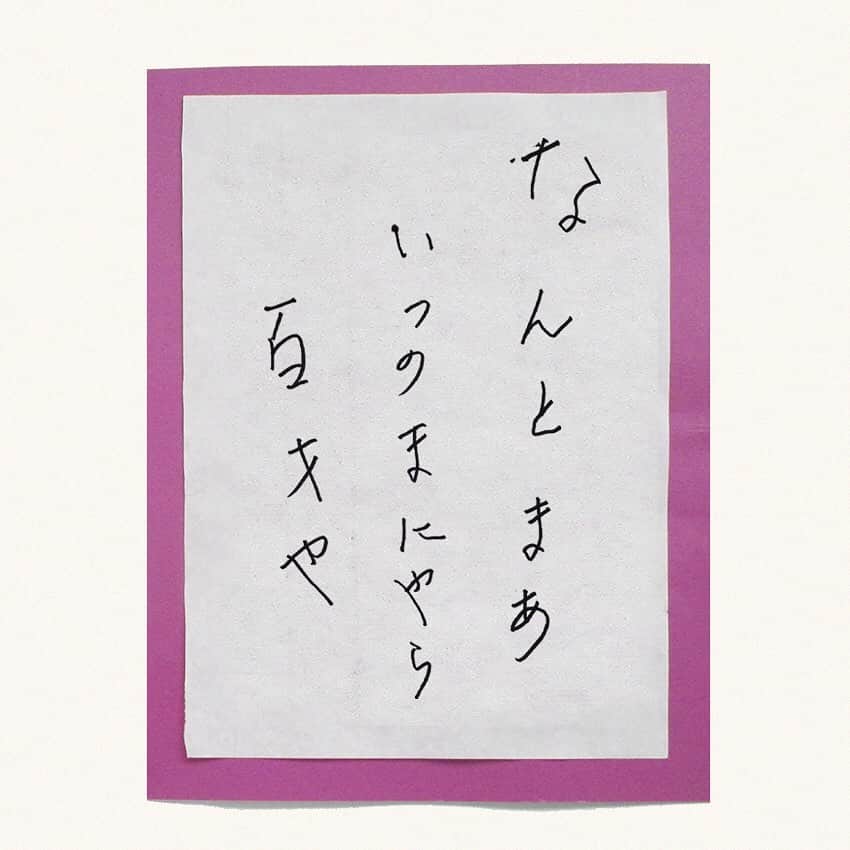 なんとまあ
いつのまにやら
百才や